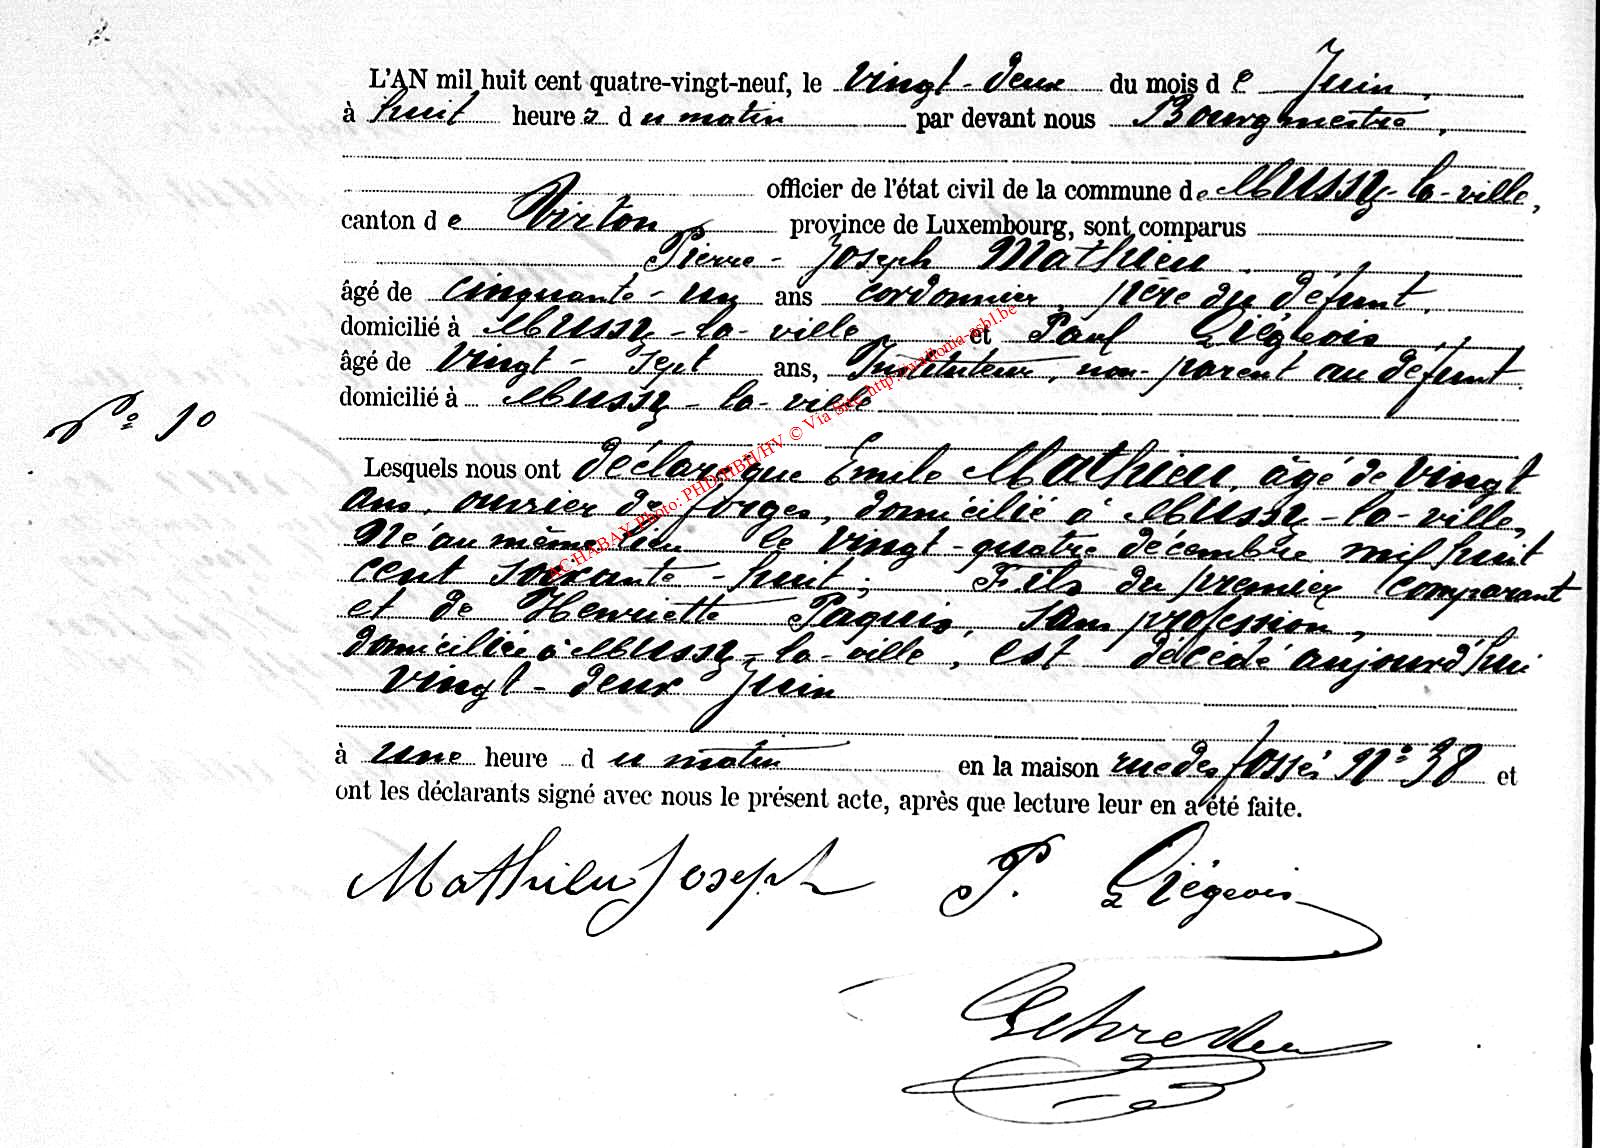 L'AN mil huit cent quatre-vingt-neuf, le vingt-deux du mois de Juin,
à huit heures du matin par devant nous Bourgmestre,
officier de l'état civil de la commune de Mussy-la-ville,
canton de Virton province de Luxembourg, sont comparus
Pierre-Joseph Mathieu,
âgé de cinquante-un ans cordonnier, père du défunt,
domicilié à Mussy-la-ville et Paul Liégeois,
âgé de vingt-sept ans, Instituteur, non-parent au défunt
domicilié à Mussy-la-ville
N° 10
Lesquels nous ont déclaré que Emile Mathieu, âgé de vingt
ans, ouvrier de forges, domicilié à Mussy-la-ville,
Né au même lieu le vingt-quatre décembre mil huit
cent soixante-huit; Fils du premier comparant
et de Henriette Paquis, sans profession,
domiciliée à Mussy-la-ville, est décédé aujourd'hui
vingt-deux Juin
à une heure du matin en la maison rue des fossés N° 38 et
ont les déclarants signé avec nous le présent acte, après que lecture leur en a été faite.
Mathieu Joseph P. Liégeois
ACHABAY Photo: PHD/HBH/HV © Via Site http://wallonia-asbl.be